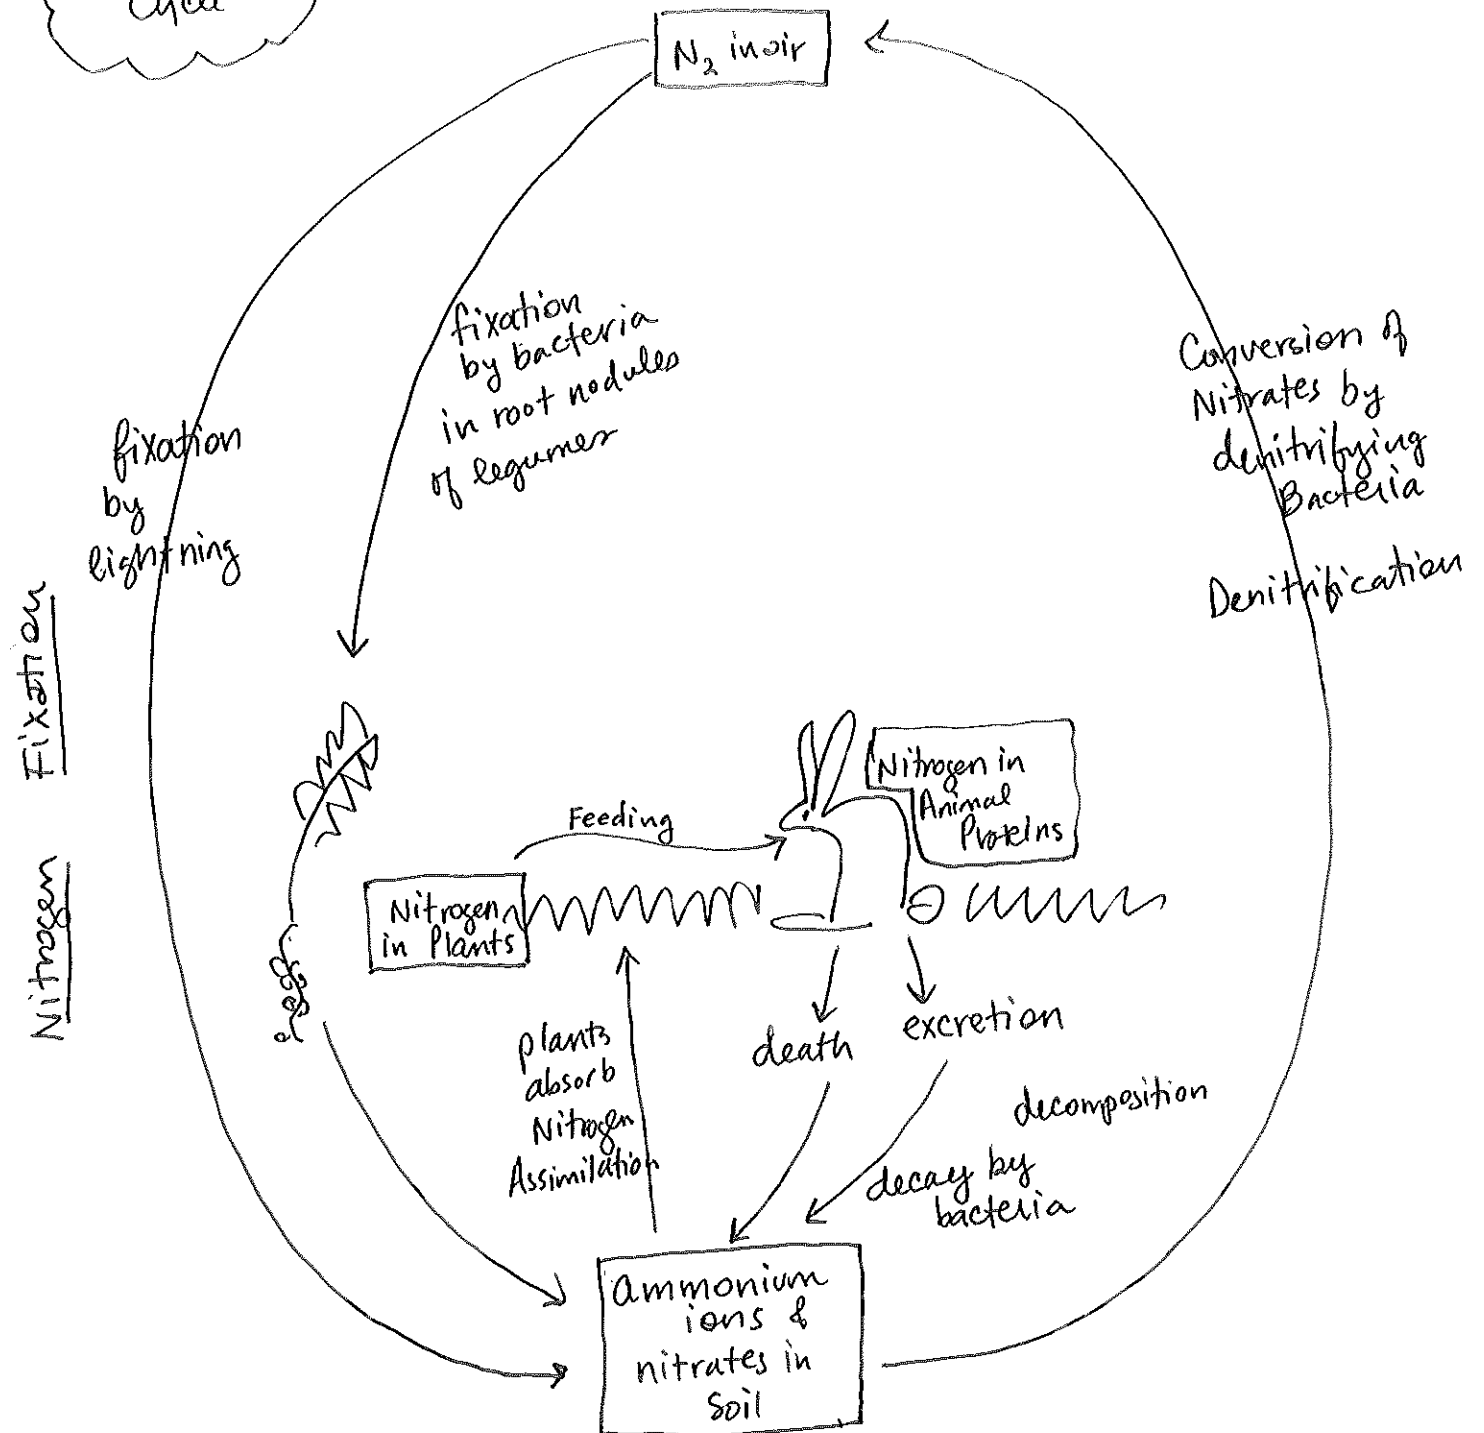 Cycle
N₂ in air
fixation
by bacteria
in root nodules
of legumes
fixation
by
lightning
Conversion of
Nitrates by
denitrifying
Bacteria
Denitrification
Nitrogen Fixation
Nitrogen in
Animal
Proteins
Feeding
Nitrogen
in Plants
plants
absorb
Nitrogen
Assimilation
death
excretion
decomposition
decay by
bacteria
ammonium
ions &
nitrates in
Soil